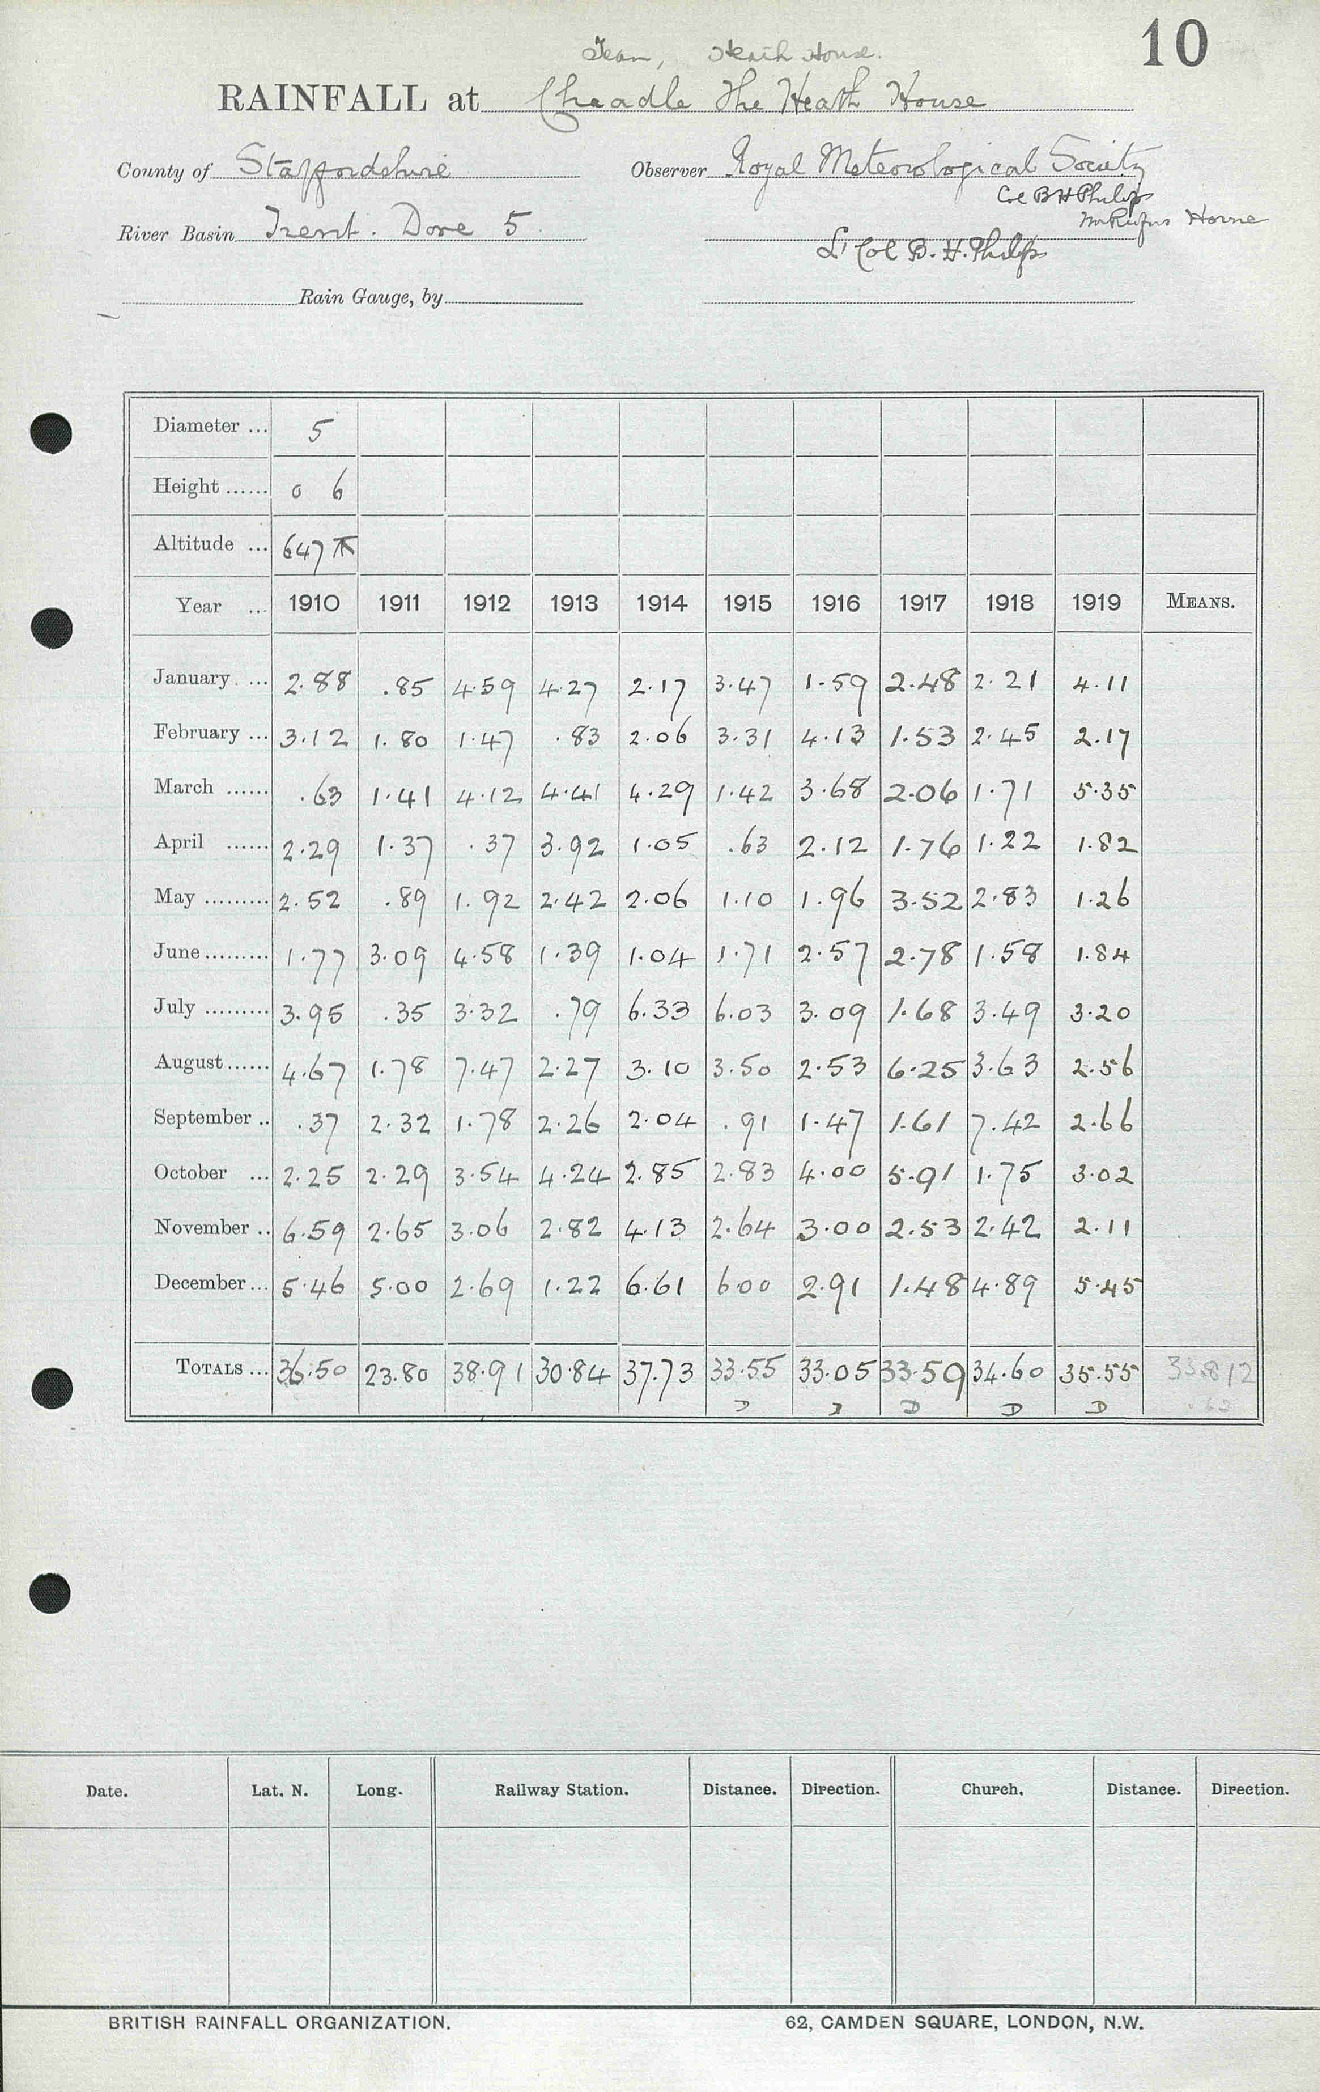 10
Tean, Heath House.
RAINFALL at Cheadle The Heath House
County of Staffordshire Observer Royal Meteorological Society
Col B H Philips
Mr Rufus Horne
River Basin Trent. Dove 5
Lt Col B. H. Philips
Rain Gauge, by
Diameter ... 5
Height ...... 0 6
Altitude ... 647
Year ... 1910 1911 1912 1913 1914 1915 1916 1917 1918 1919 MEANS.
January ... 2.88 .85 4.59 4.27 2.17 3.47 1.59 2.48 2.21 4.11
February ... 3.12 1.80 1.47 .83 2.06 3.31 4.13 1.53 2.45 2.17
March ...... .63 1.41 4.12 4.41 4.29 1.42 3.68 2.06 1.71 5.35
April ...... 2.29 1.37 .37 3.92 1.05 .63 2.12 1.76 1.22 1.82
May ......... 2.52 .89 1.92 2.42 2.06 1.10 1.96 3.52 2.83 1.26
June ......... 1.77 3.09 4.58 1.39 1.04 1.71 2.57 2.78 1.58 1.84
July ......... 3.95 .35 3.32 .79 6.33 6.03 3.09 1.68 3.49 3.20
August...... 4.67 1.78 7.47 2.27 3.10 3.50 2.53 6.25 3.63 2.56
September .. .37 2.32 1.78 2.26 2.04 .91 1.47 1.61 7.42 2.66
October ... 2.25 2.29 3.54 4.24 2.85 2.83 4.00 5.91 1.75 3.02
November .. 6.59 2.65 3.06 2.82 4.13 2.64 3.00 2.53 2.42 2.11
December ... 5.46 5.00 2.69 1.22 6.61 6 00 2.91 1.48 4.89 5.45
TOTALS ... 36.50 23.80 38.91 30.84 37.73 33.55 33.05 33.59 34.60 35.55 33.812
D D D D D
Date. Lat. N. Long. Railway Station. Distance. Direction. Church. Distance. Direction.
BRITISH RAINFALL ORGANIZATION. 62, CAMDEN SQUARE, LONDON, N.W.